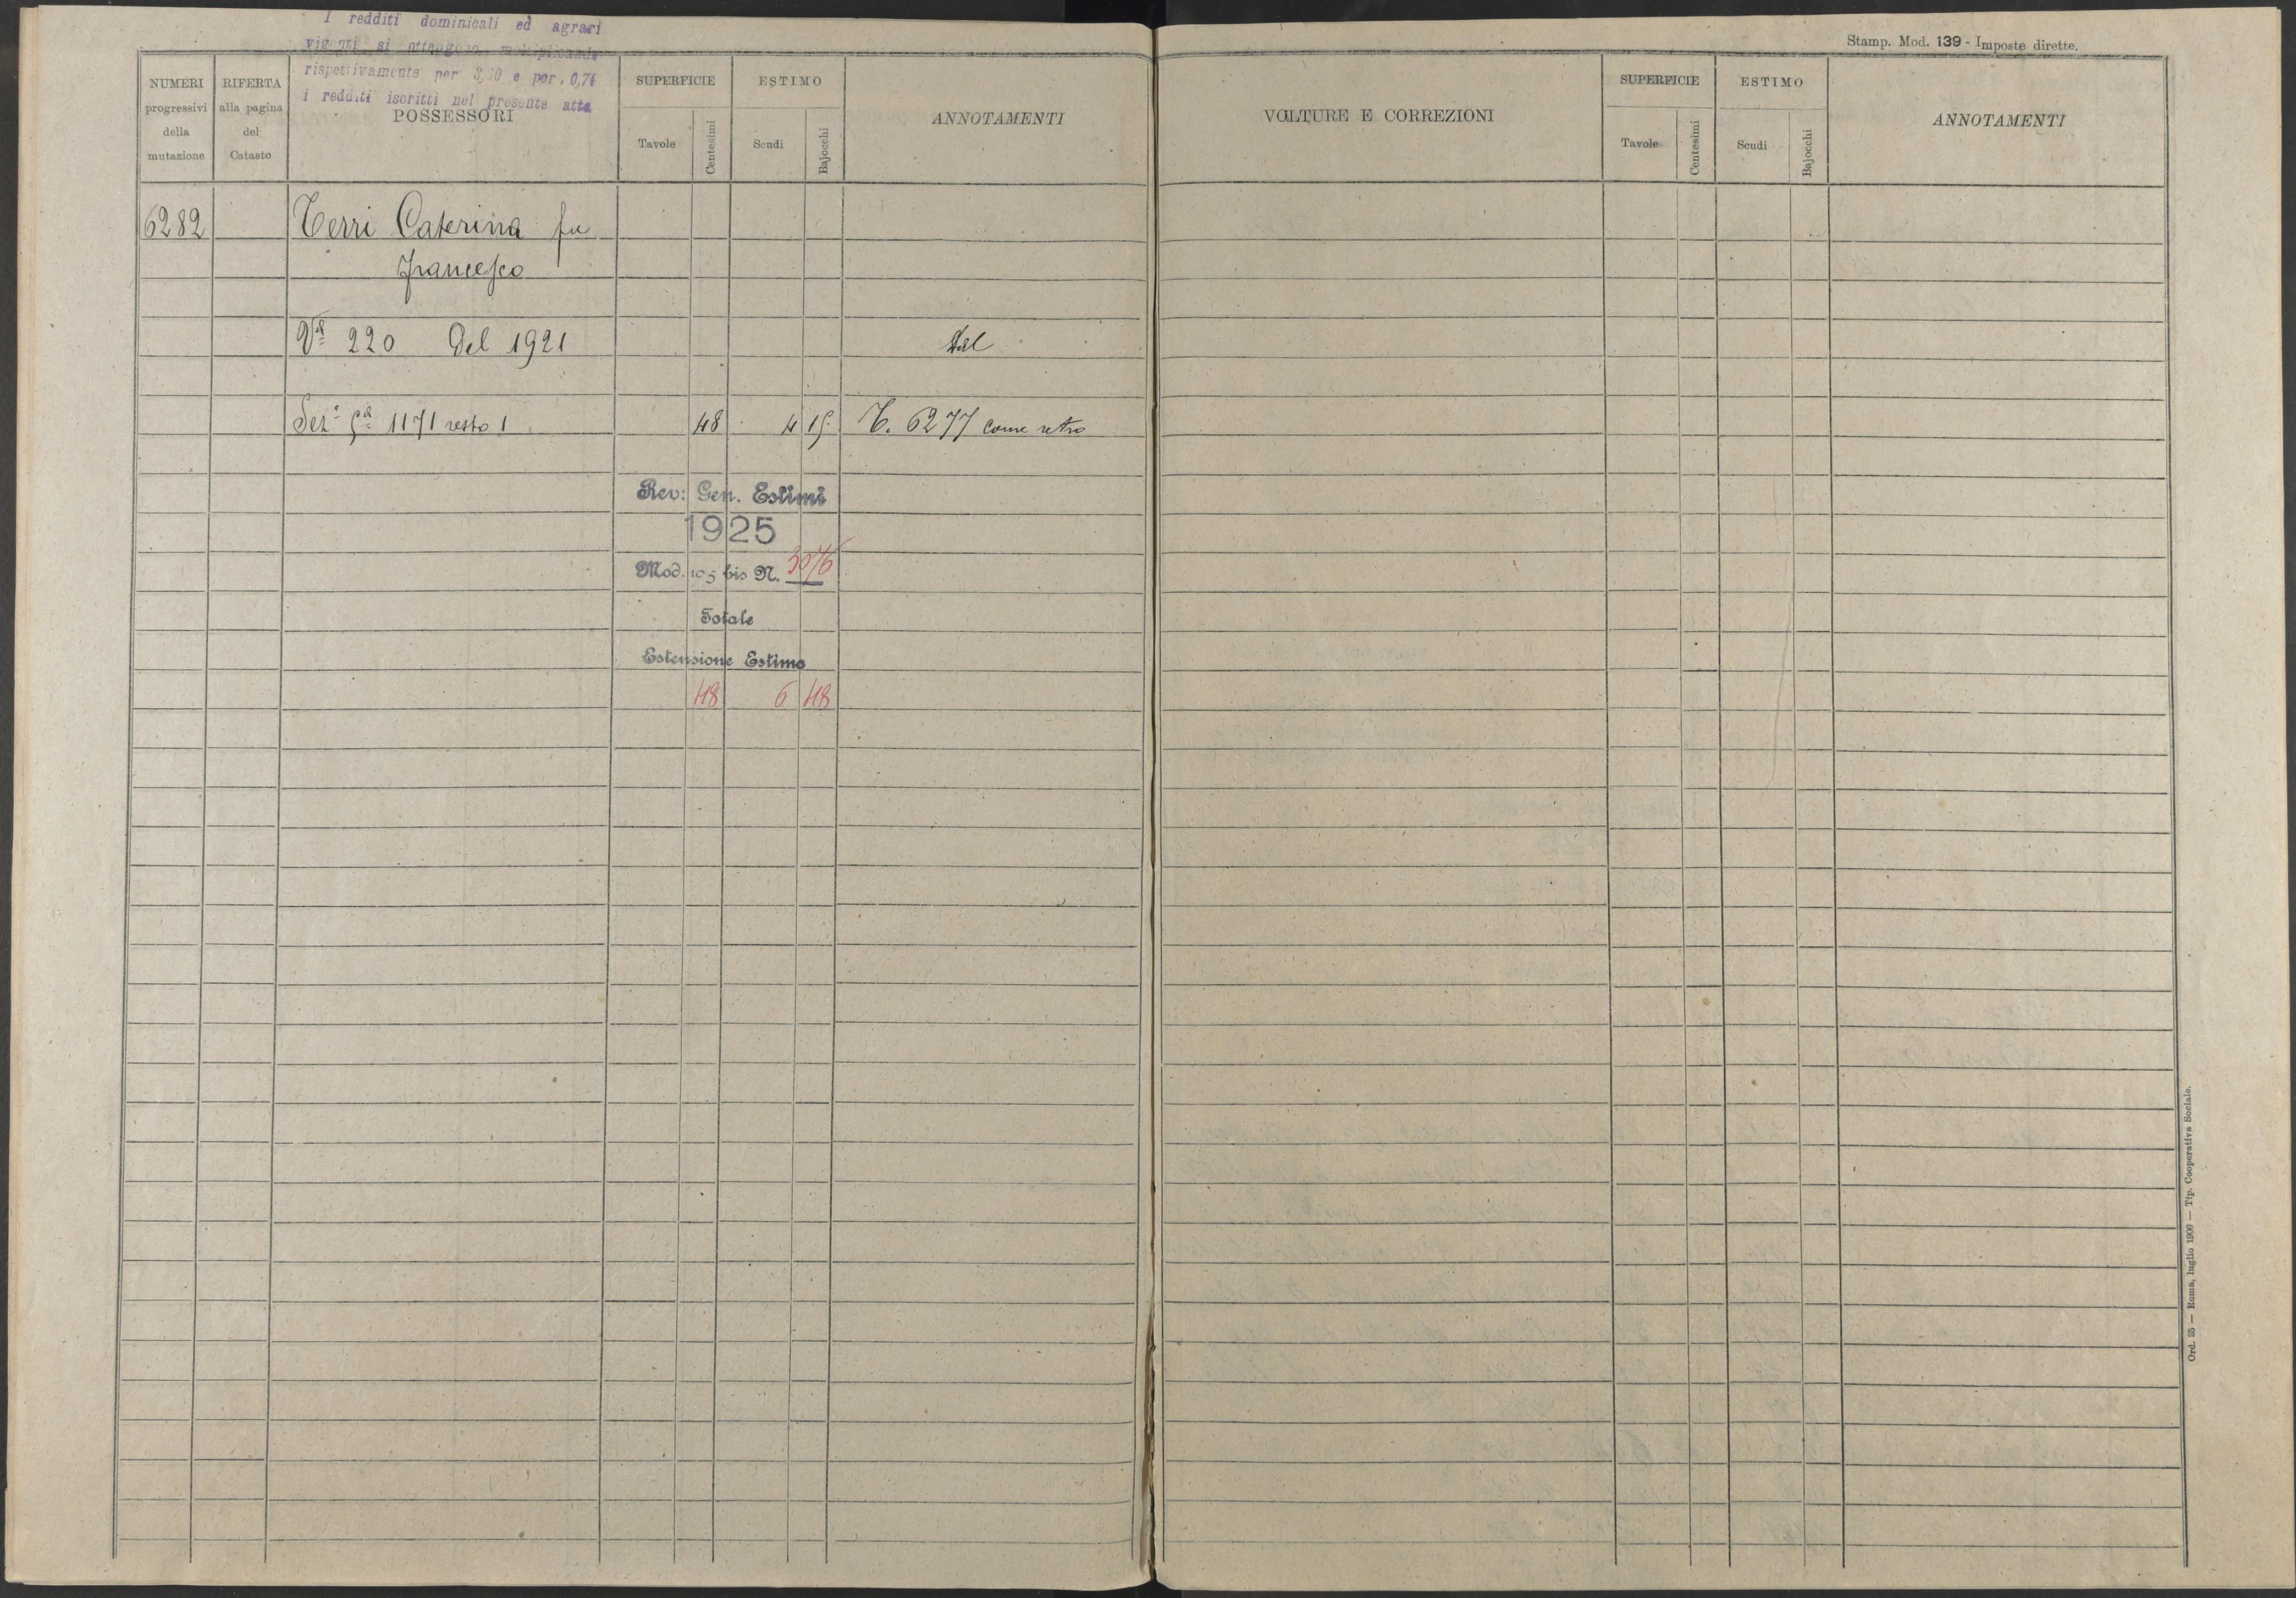 I redditi dominicali ed agrari
vigenti si ottengono moltiplicando
rispettivamente per 3,30 e per 0,74
i redditi iscritti nel presente atto
Stamp. Mod. 139 - Imposte dirette.
NUMERI progressivi della mutazione
RIFERTA alla pagina del Catasto
POSSESSORI
SUPERFICIE
Tavole
Centesimi
ESTIMO
Scudi
Bajocchi
ANNOTAMENTI
VOLTURE E CORREZIONI
SUPERFICIE
Tavole
Centesimi
ESTIMO
Scudi
Bajocchi
ANNOTAMENTI
6282 Terri Caterina fu
Francesco
Vª 220 Del 1921 Dal
Sezᵉ 5ª 1171 resto 1 48 4 15 T. 6277 come retro
Rev: Gen. Estimi
1925
Mod. 105 bis N. 3076
Totale
Estensione Estimo
48 6 48
Ord. 25 — Roma, luglio 1906 — Tip. Cooperativa Sociale.